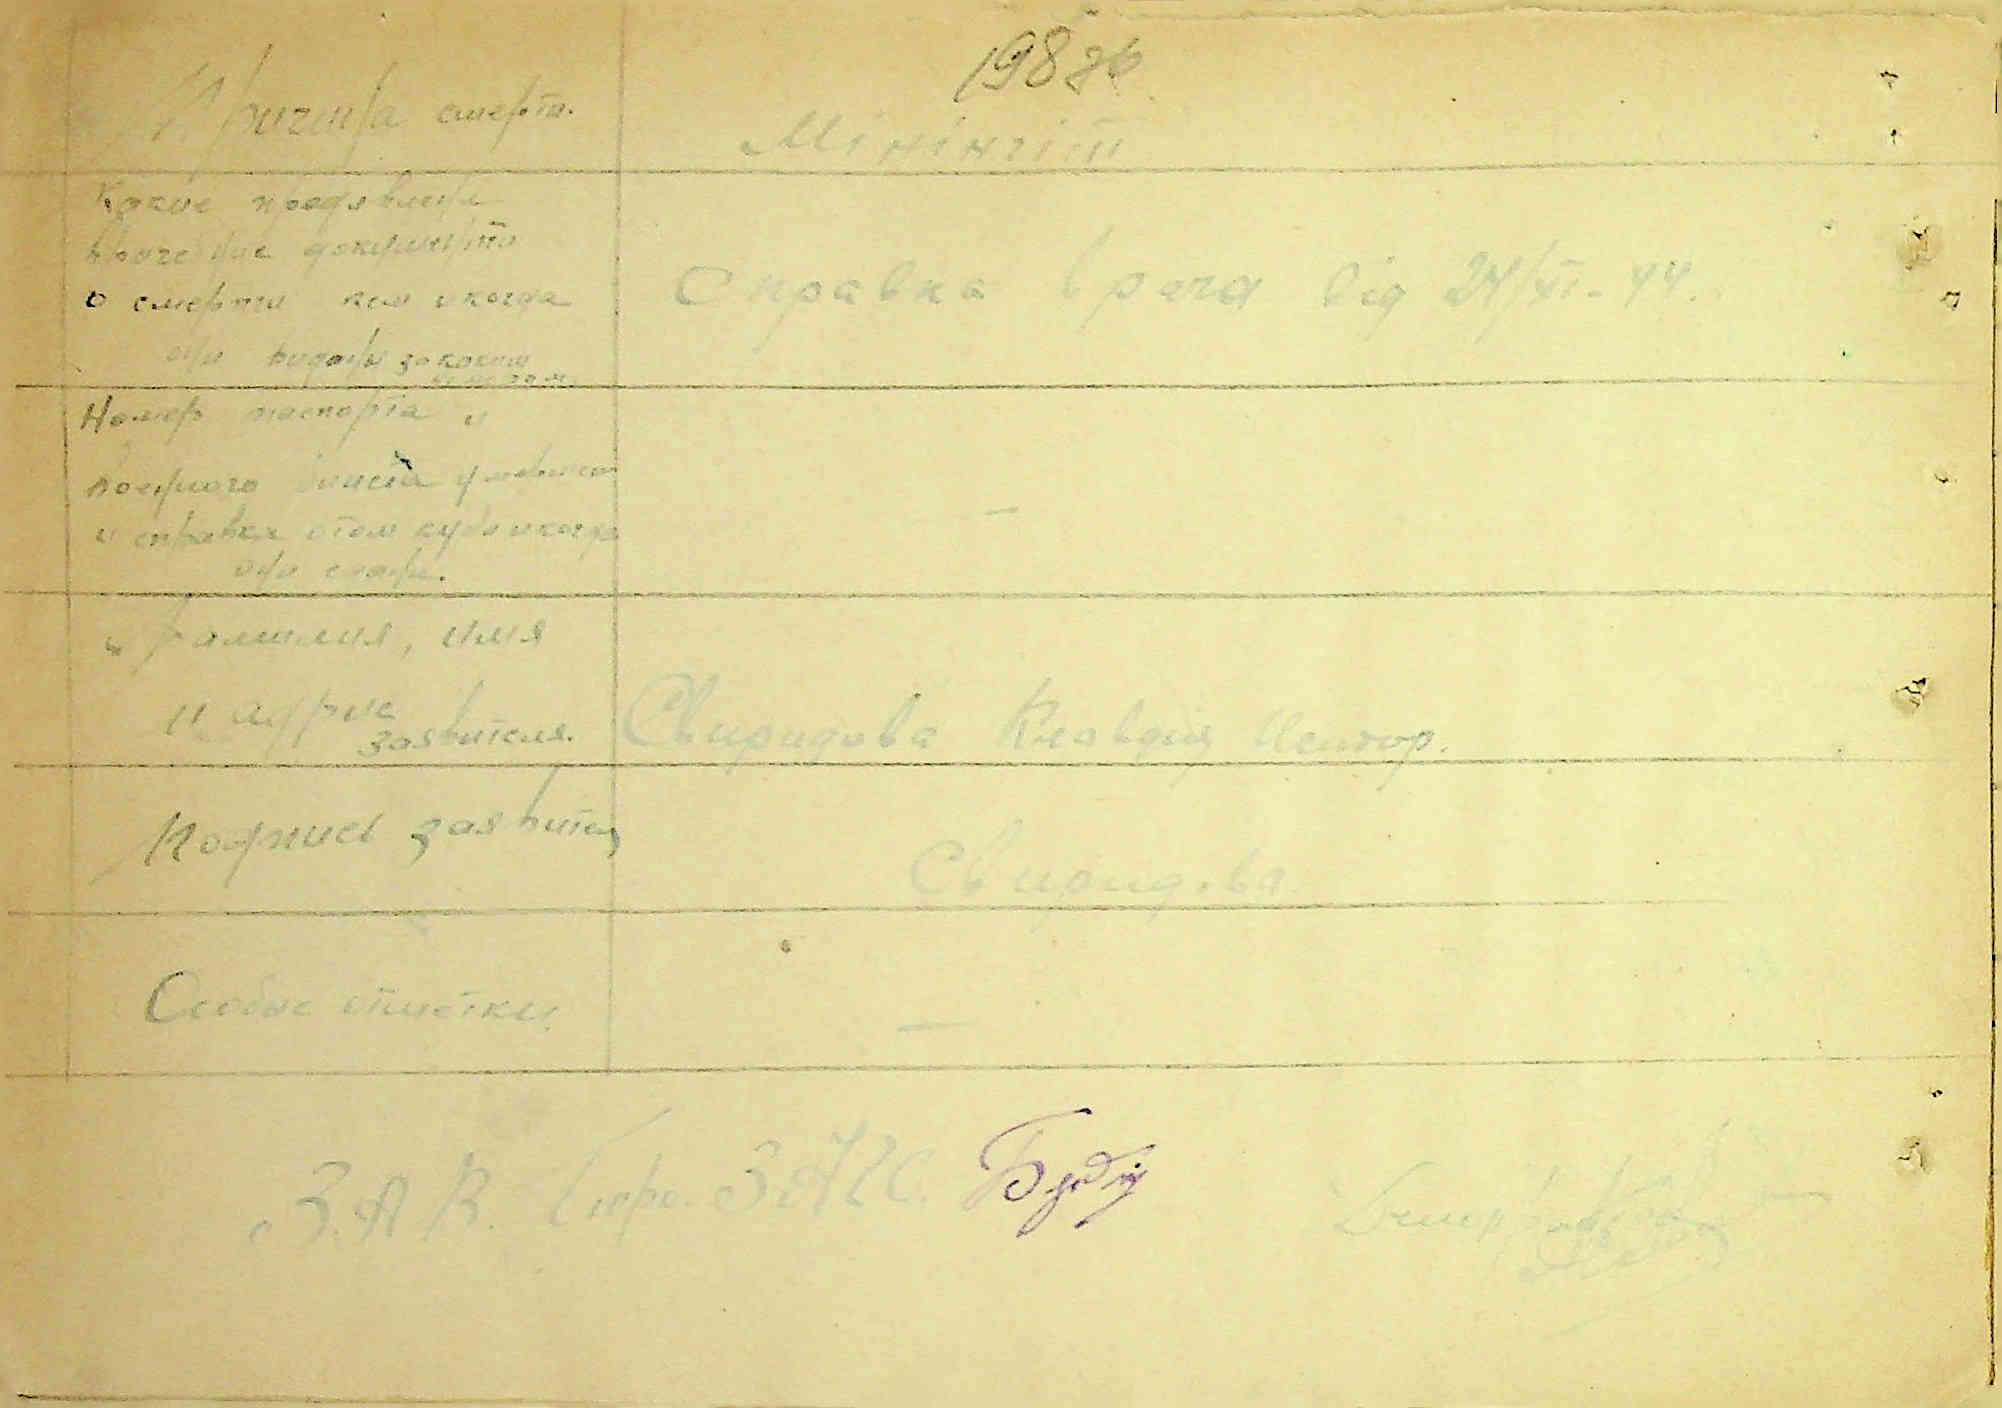 198 зв
Причина смерти.
Мінінгіт
Какие предявлени
врачебние документи
о смерти кем и когда
они видани за каким
номером
Справка врача від 24/XI-44.
Номер паспорта и
военного билета умершего
и справка о том куда и когда
они сдани.
—
Фамилия, имя
и адрис
заявителя.
Свиридова Клавдія Нестор.
Подпись заявителя
Свиридова
Особые отметки
—
Зав. Бюро. ЗАГС.